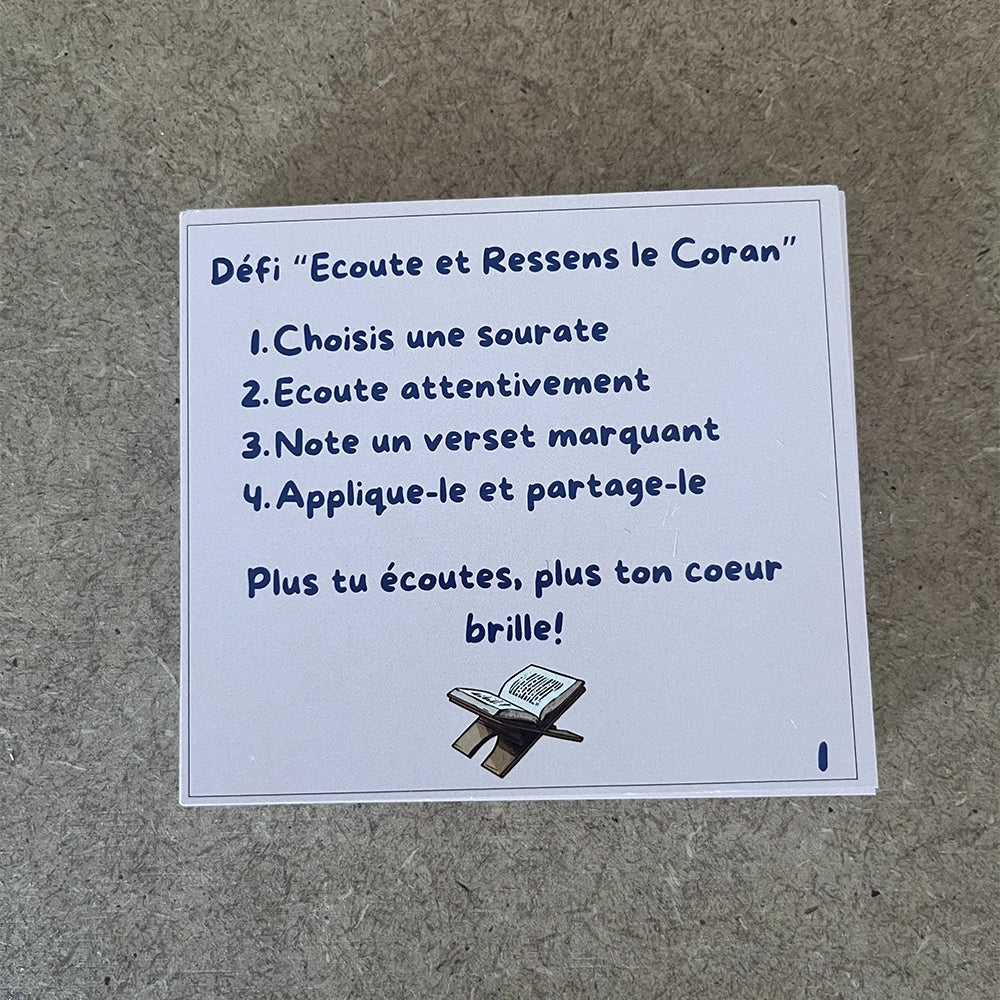 Défi “Ecoute et Ressens le Coran”
1. Choisis une sourate
2. Ecoute attentivement
3. Note un verset marquant
4. Applique-le et partage-le
Plus tu écoutes, plus ton coeur
brille!
1